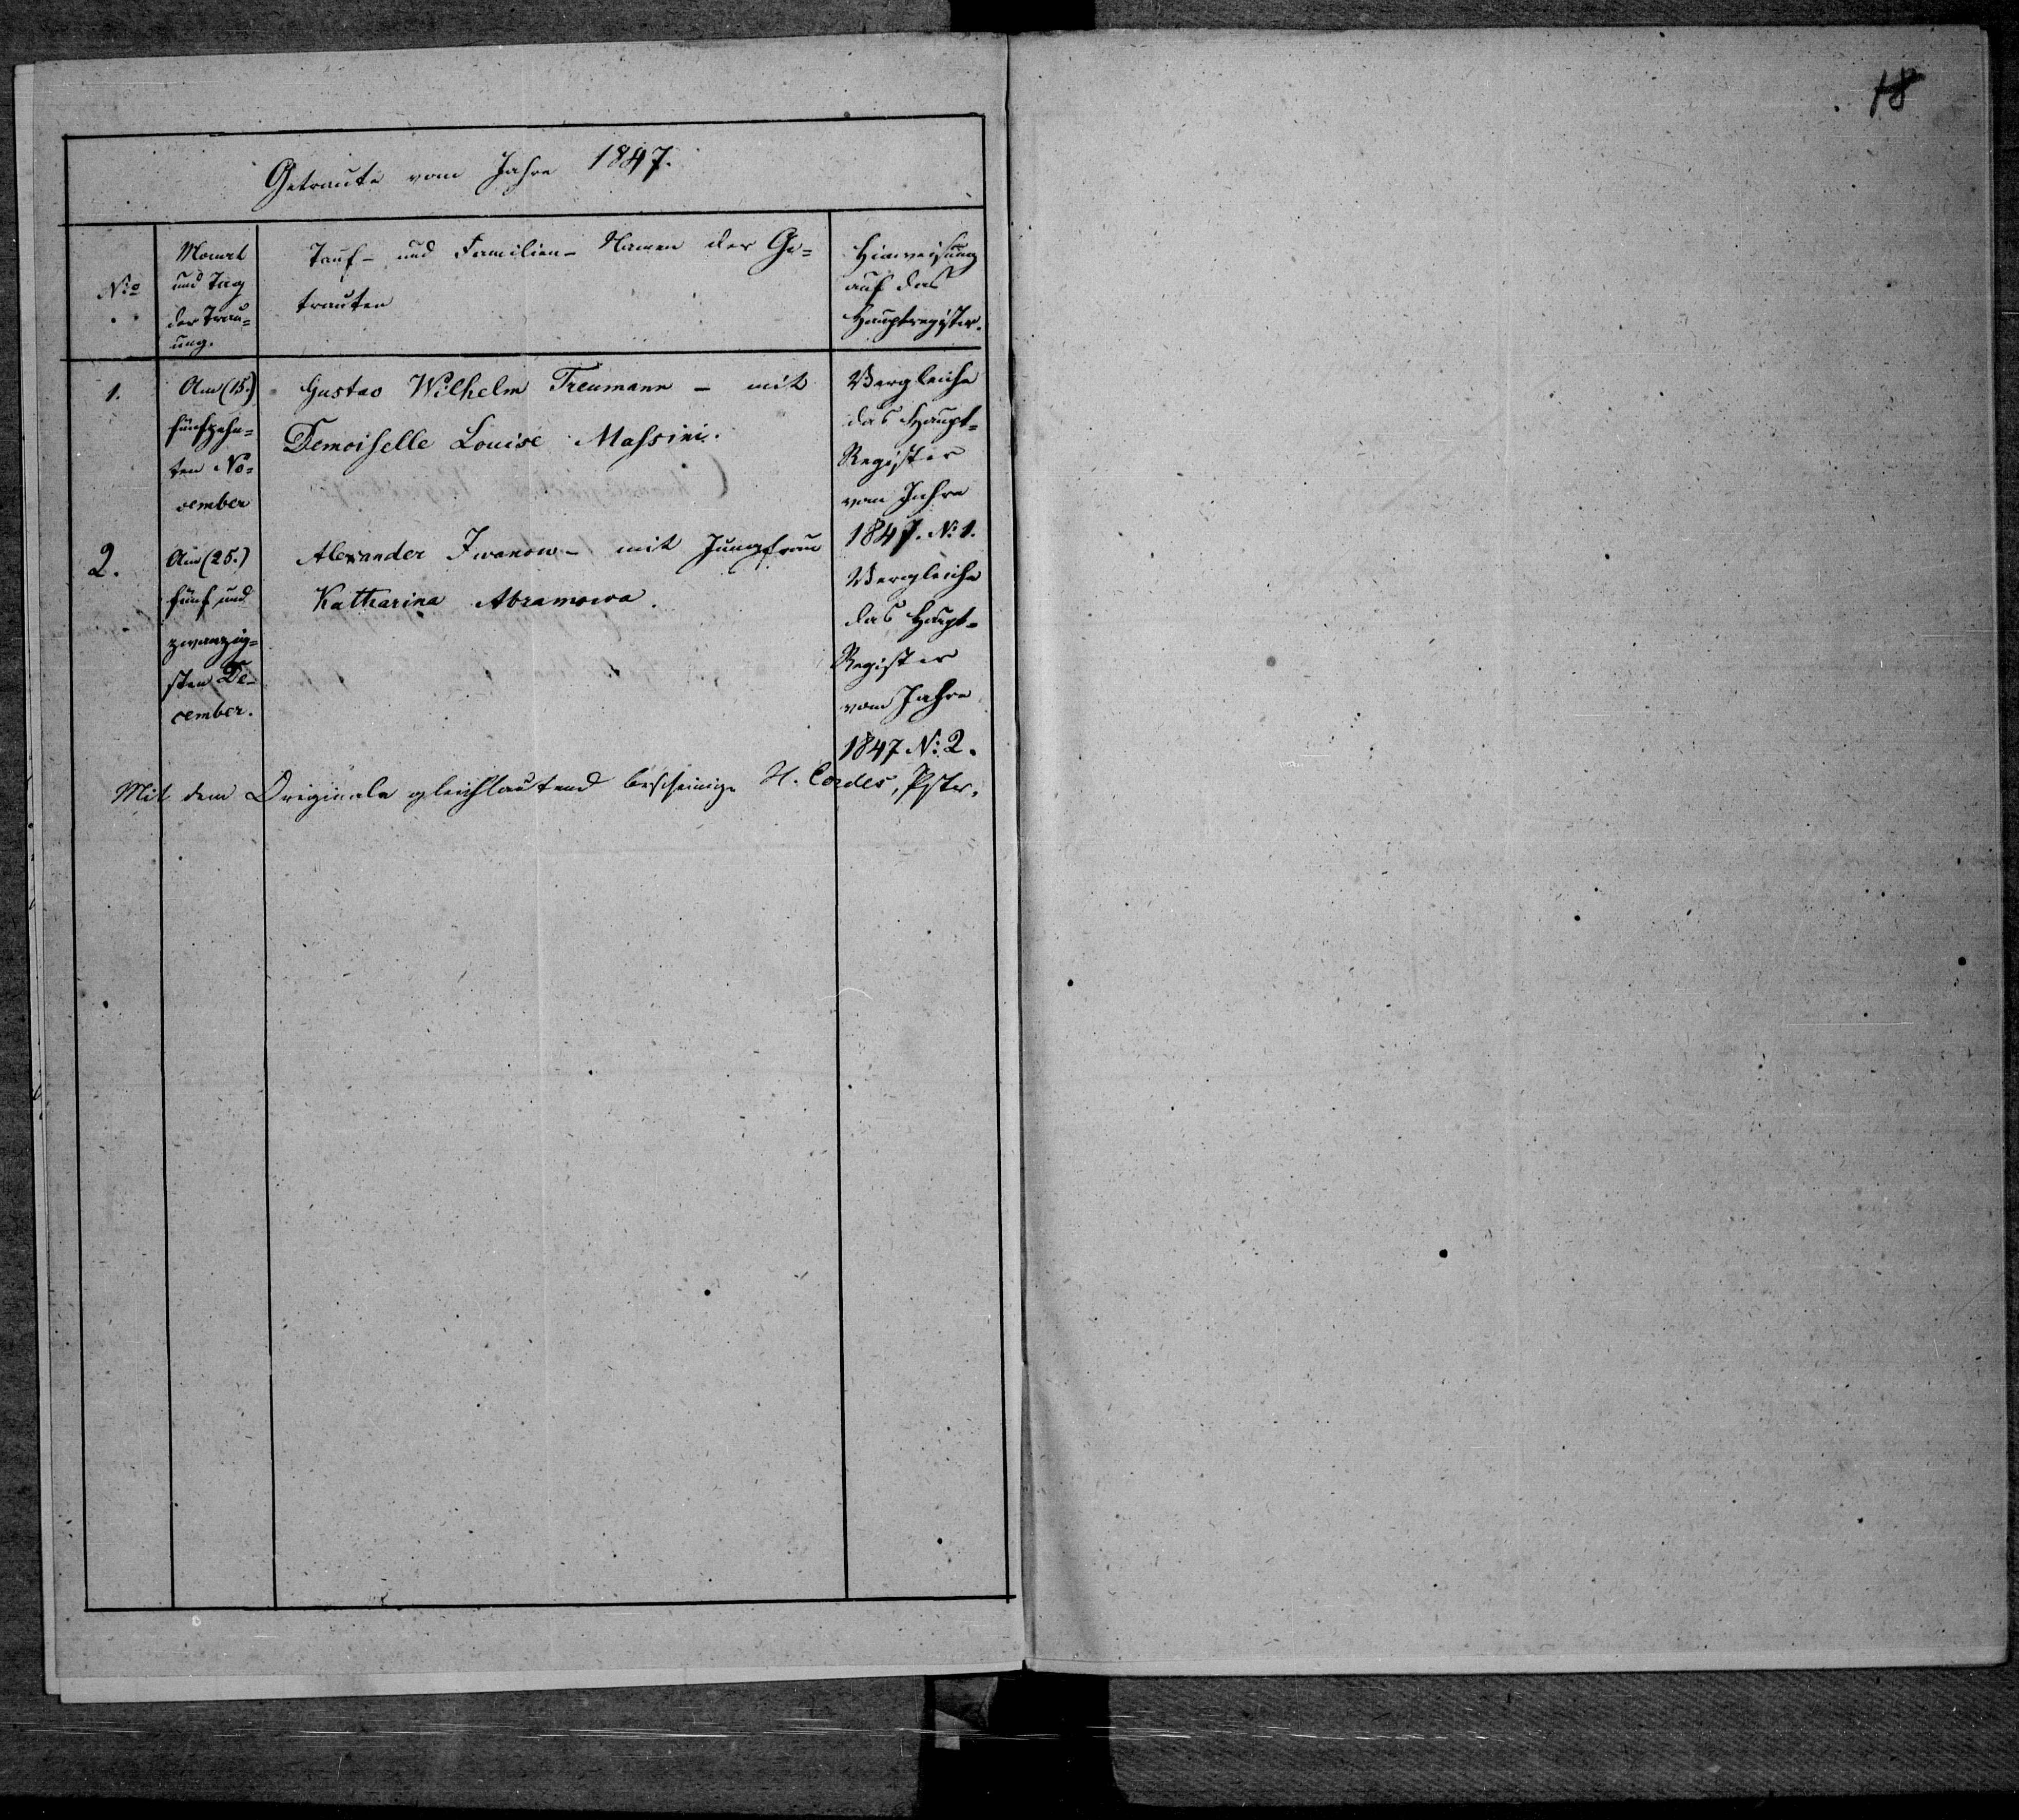 18
Getraute vom Jahre 1847.
No
Monat
und Tag
der Trau=
ung.
Tauf- und Familien- Namen der Ge=
trauten
Hinweisung
auf das
Hauptregister.
1.
Am (15.)
fünfzehn=
ten No=
vember
Gustav Wilhelm Treumann - mit
Demoiselle Louise Massini.
Vergleiche
das Haupt=
Register
vom Jahre
1847. No 1.
2.
Am (25.)
fünf und
zwanzig=
sten De-
cember.
Alexander Iwanow - mit Jungfrau
Katharina Abramowa.
Vergleiche
das Haupt=
Register
vom Jahre
1847 No 2.
Mit dem Originale gleichlautend bescheinige H. Cordes, Pstr.